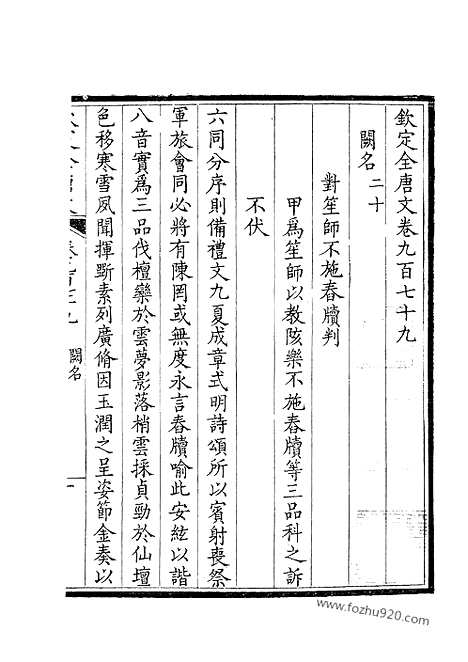 欽定全唐文卷九百七十九
闕名二十
對笙師不施舂牘判
甲爲笙師以教陔樂不施舂牘等三品科之訴
不伏
六同分序則備禮文九夏成章式明詩頌所以賓射喪祭
軍旅會同必將有陳罔或無度永言舂牘喻此安絃以諧
八音實爲三品伐檀欒於雲夢影落梢雲採貞勁於仙壇
色移寒雪夙聞揮斲素列廣脩因玉潤之呈姿節金奏以
闕名
一
www.fozhu920.com